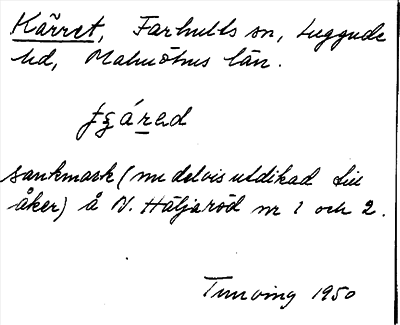 Kärret, Farhults sn, Luggude
hd, Malmöhus län.
sankmark (nu delvis utdikad till
åker) å N. Häljaröd nr 1 och 2.
1950